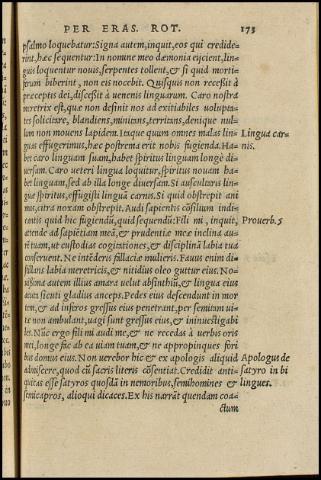 PER ERAS. ROT. 173
psalmo loquebatur: Signa autem, inquit, eos qui credide-
rint, hæc sequentur: In nomine meo dæmonia eijcient, lin-
guis loquentur nouis, serpentes tollent, & si quid morti-
ferum biberint, non eis nocebit. Quisquis non recessit à
præceptis dei, discessit à uenenis linguarum. Caro nostra
meretrix est, quæ non desinit nos ad exitiabiles uolupta-
tes solicitare, blandiens, minitans, territans, denique nul-
lum non mouens lapidem. Itaque quum omnes malas lin-
Lingua car-
guas effugerimus, hæc postrema erit nobis fugienda. Ha-
nis.
bet caro linguam suam, habet spiritus linguam longè di-
uersam. Caro ueteri lingua loquitur, spiritus nouam ha-
bet linguam, sed ab illa longe diuersam. Si auscultaris lin-
guæ spiritus, effugisti linguā carnis. Si quid obstrepit ani
mus, citra noxam obstrepit. Audi sapientis cōsilium indi-
cantis quid hic fugiendū, quid sequendū: Fili mi, inquit,
Prouerb. 5
attende ad sapiētiam meā, & prudentiæ meæ inclina au-
rē tuam, ut custodias cogitationes, & disciplinā labia tua
conseruent. Ne intēderis fallaciæ mulieris. Fauus enim di-
stillans labia meretricis, & nitidius oleo guttur eius. No-
uissima autem illius amara uelut absinthiū, & lingua eius
acuta sicuti gladius anceps. Pedes eius descendunt in mor
tem, & ad inferos gressus eius penetrant, per semitam ui-
tæ non ambulant, uagi sunt gressus eius, & ininuestigabi
les. Nūc ergo fili mi audi me, & ne recedas à uerbis oris
mei, longe fac ab ea uiam tuam, & ne appropinques fori
bus domus eius. Non uerebor hic & ex apologis aliquid
Apologus de
admiscere, quod cū sacris literis cōsentiat. Credidit anti-
satyro in bi
quitas esse satyros quosdā in nemoribus, semihomines &
lingues.
semicapros, alioqui dicaces. Ex his narrāt quendam coa-
ctum